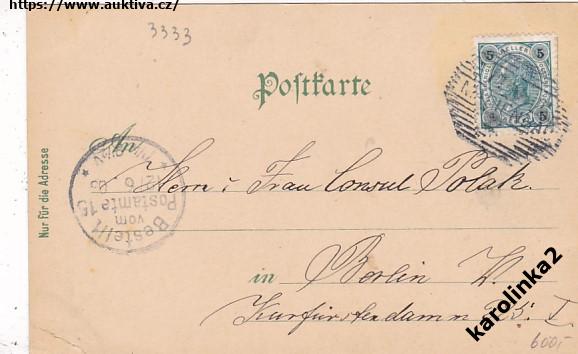 https://www.auktiva.cz/
3333
Postkarte
An
Herrn u Frau Consul Polak.
in Berlin W.
Kurfürstendamm 25 I
Nur für die Adresse
Bestellt
vom
Postamte 15
12/6
5
5
HELLER
5
5
karolinka2
600,-